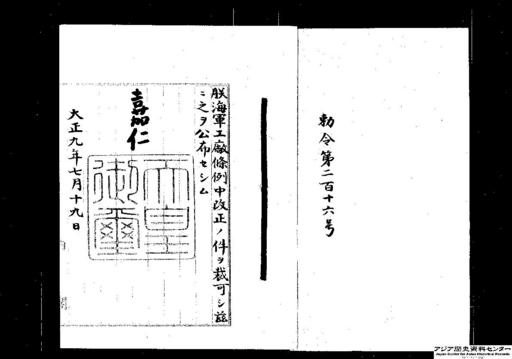 勅令第二百十六号
朕海軍工廠條例中改正ノ件ヲ裁可シ茲
ニ之ヲ公布セシム
嘉仁
天皇御璽
大正九年七月十九日
アジア歴史資料センター
Japan Center for Asian Historical Records